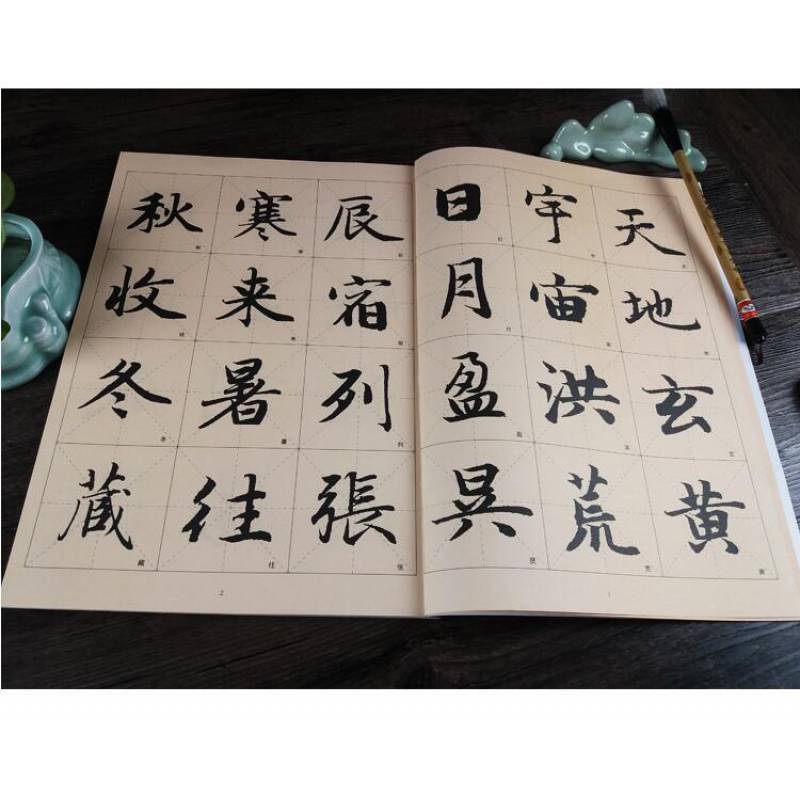 天地玄黄
宇宙洪荒
日月盈昃
1
辰宿列張
寒来暑往
秋收冬藏
2